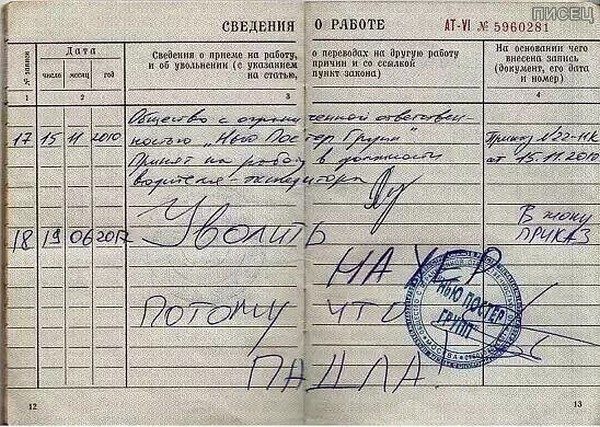 ПИСЕЦ
СВЕДЕНИЯ О РАБОТЕ
АТ-VI № 5960281
№ записи
Дата
число месяц год
Сведения о приеме на работу, о переводах на другую работу
и об увольнении (с указанием причин и со ссылкой
на статью, пункт закона)
На основании чего
внесена запись
(документ, его дата
и номер)
1 2 3 4
Общество с ограниченной ответствен-
17 15 11 2010 ностью „Нью Постер Групп"
Принят на работу в должности
водителя-экспедитора
Приказ №22-НК
от 15.11.2010
18 19 06 2012 Уволить
НАХЕР
ПОТОМУ ЧТО
ПАДЛА.
В жопу
ПРИКАЗ
НЬЮ ПОСТЕР
ГРУПП
МОСКВА
12
13